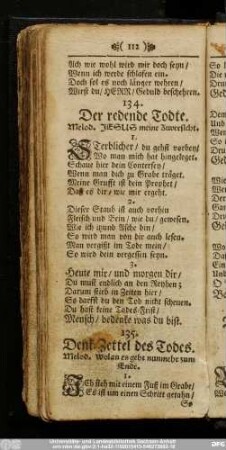 ( 112 )
Ach wie wohl wird mir doch seyn/
Wenn ich werde schlafen ein.
Doch sol es noch länger wehren/
Wirst du/ HERR/ Geduld beschehren.
134.
Der redende Todte.
Melod. JESUS meine Zuversicht.
1.
STerblicher/ du gehst vorbey/
Wo man mich hat hingeleget.
Schaue hier dein Conterfey/
Wenn man dich zu Grabe träget.
Meine Grufft ist dein Prophet/
Daß es dir/ wie mir ergeht.
2.
Dieser Staub ist auch vorhin
Fleisch und Bein/ wie du/ gewesen.
Wa ich ietzund Asche bin/
So wird man von dir auch lesen.
Man vergißt im Tode mein/
So wird dein vergessen seyn.
3.
Heute mir/ und morgen dir/
Du must endlich an den Reyhen;
Darum stirb in Zeiten hier/
So darffst du den Tod nicht scheuen.
Du hast keine Tages-Frist/
Mensch/ bedencke was du bist.
135.
Denk-Zettel des Todes.
Melod. wolan es geht nunmehr zum
Ende.
1.
ICh steh mit einem Fuß im Grabe/
Es ist um einen Schritt gethan/
So